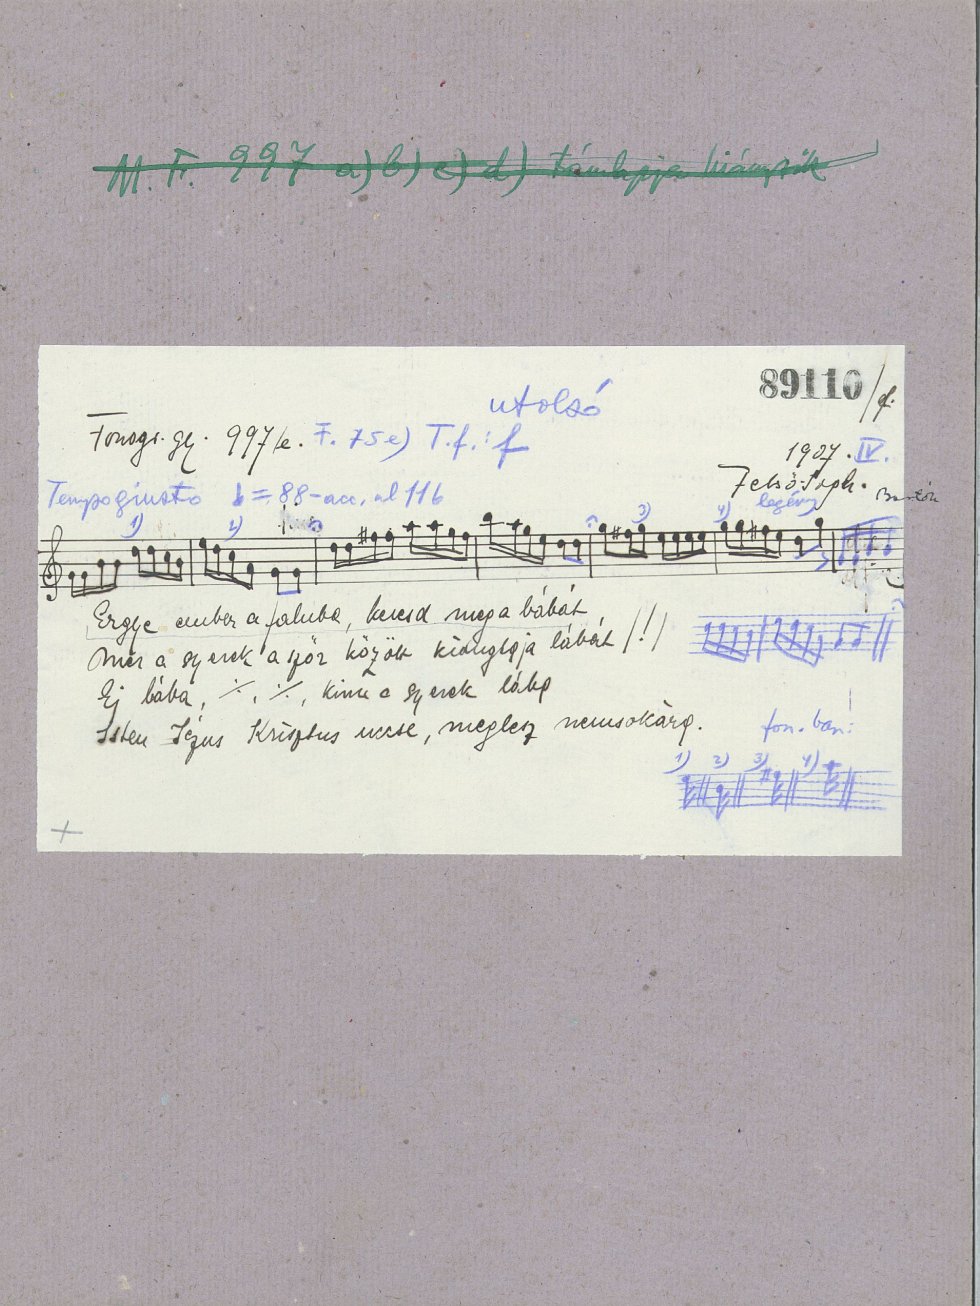 M. F. 997 a) b) c) d) támlapjai hiányzik
89110/f.
utolsó
Fonogr. gy. 997/e. F. 75 e) T.f.: f
1907. IV.
Felső-Iregh. Bartók
legény
Tempo giusto ♩ = 88 - acc. al 116
1) 2) 3) 4)
Eregye ember a faluba, keresd meg a bábát
Mer a gyerek a szőr között kirugtya lábát /!/
Ej bába, ·/·, ·/·, kinn a gyerek lába
Isten Jézus Krisztus uccse, meglesz nemsokára.
fon. ban:
1) 2) 3) 4)